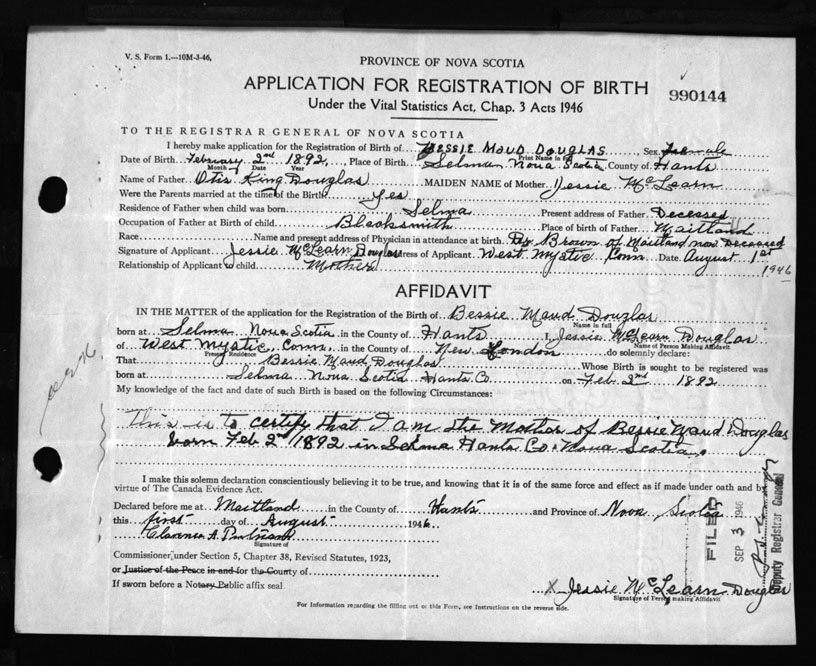 V. S. Form 1.—10M-3-46,
PROVINCE OF NOVA SCOTIA
APPLICATION FOR REGISTRATION OF BIRTH
990144
Under the Vital Statistics Act, Chap. 3 Acts 1946
TO THE REGISTRAR GENERAL OF NOVA SCOTIA
I hereby make application for the Registration of Birth of BESSIE MAUD DOUGLAS, Sex Female
Print Name in full
Date of Birth February 2nd 1892, Place of Birth Selma Nova Scotia County of Hants
Month Date Year
Name of Father Otis King Douglas MAIDEN NAME of Mother Jessie McLearn
Were the Parents married at the time of the Birth? Yes
Residence of Father when child was born Selma Present address of Father Deceased
Occupation of Father at Birth of child Blacksmith Place of birth of Father Maitland
Race Name and present address of Physician in attendance at birth Dr Brown of Maitland now Deceased
Signature of Applicant Jessie McLearn Douglas Address of Applicant West Mystic Conn Date August 1st 1946
Relationship of Applicant to child Mother
AFFIDAVIT
IN THE MATTER of the application for the Registration of the Birth of Bessie Maud Douglas
Name in full
born at Selma Nova Scotia in the County of Hants I, Jessie McLearn Douglas
Name of Person Making Affidavit
of West Mystic, Conn. in the County of New London do solemnly declare:
Present Residence
That Bessie Maud Douglas Whose Birth is sought to be registered was
born at Selma Nova Scotia Hants Co on Feb 2nd 1892
My knowledge of the fact and date of such Birth is based on the following Circumstances:
This is to certify that I am the Mother of Bessie Maud Douglas
born Feb 2nd 1892 in Selma Hants Co. Nova Scotia.
I make this solemn declaration conscientiously believing it to be true, and knowing that it is of the same force and effect as if made under oath and by
virtue of The Canada Evidence Act.
Declared before me at Maitland in the County of Hants and Province of Nova Scotia
this first day of August 1946.
Clarence A. Putnam
Signature of
Commissioner under Section 5, Chapter 38, Revised Statutes, 1923,
or Justice of the Peace in and for the County of
If sworn before a Notary Public affix seal
X Jessie McLearn Douglas
Signature of Person making Affidavit
For Information regarding the filling out of this Form, see Instructions on the reverse side.
FILED
SEP 3 1946
Deputy Registrar General